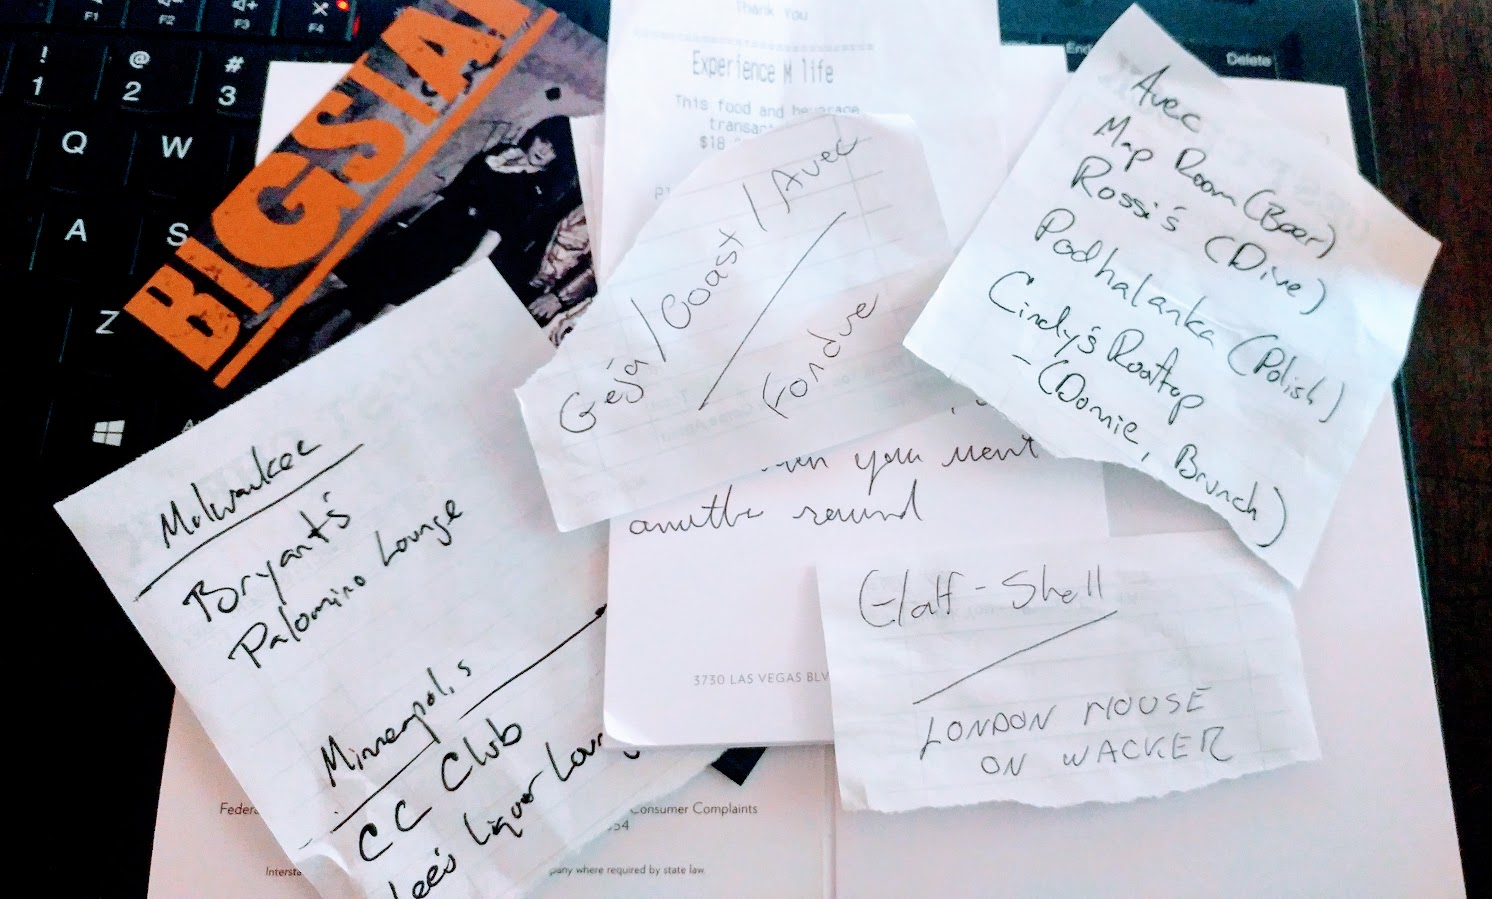 F1
F2
F3
F4
!
1
@
2
#
3
Q
W
A
S
Z
End
Delete
BIGSTA
Thank You
Experience M life
This food and beverage
$18
Geja/Coast/Avec
Fondue
Avec
Map Room (Beer)
Rossi's (Dive)
Podhalanka (Polish)
Cindy's Rooftop
- (Domie, Brunch)
Milwaukee
Bryant's
Palomino Lounge
Minneapolis
CC Club
Lee's Liquor Loun
you want
another round
3730 LAS VEGAS BLV
Half-Shell
LONDON HOUSE
ON WACKER
Federa
Consumer Complaints
54
Intersta
pany where required by state law.